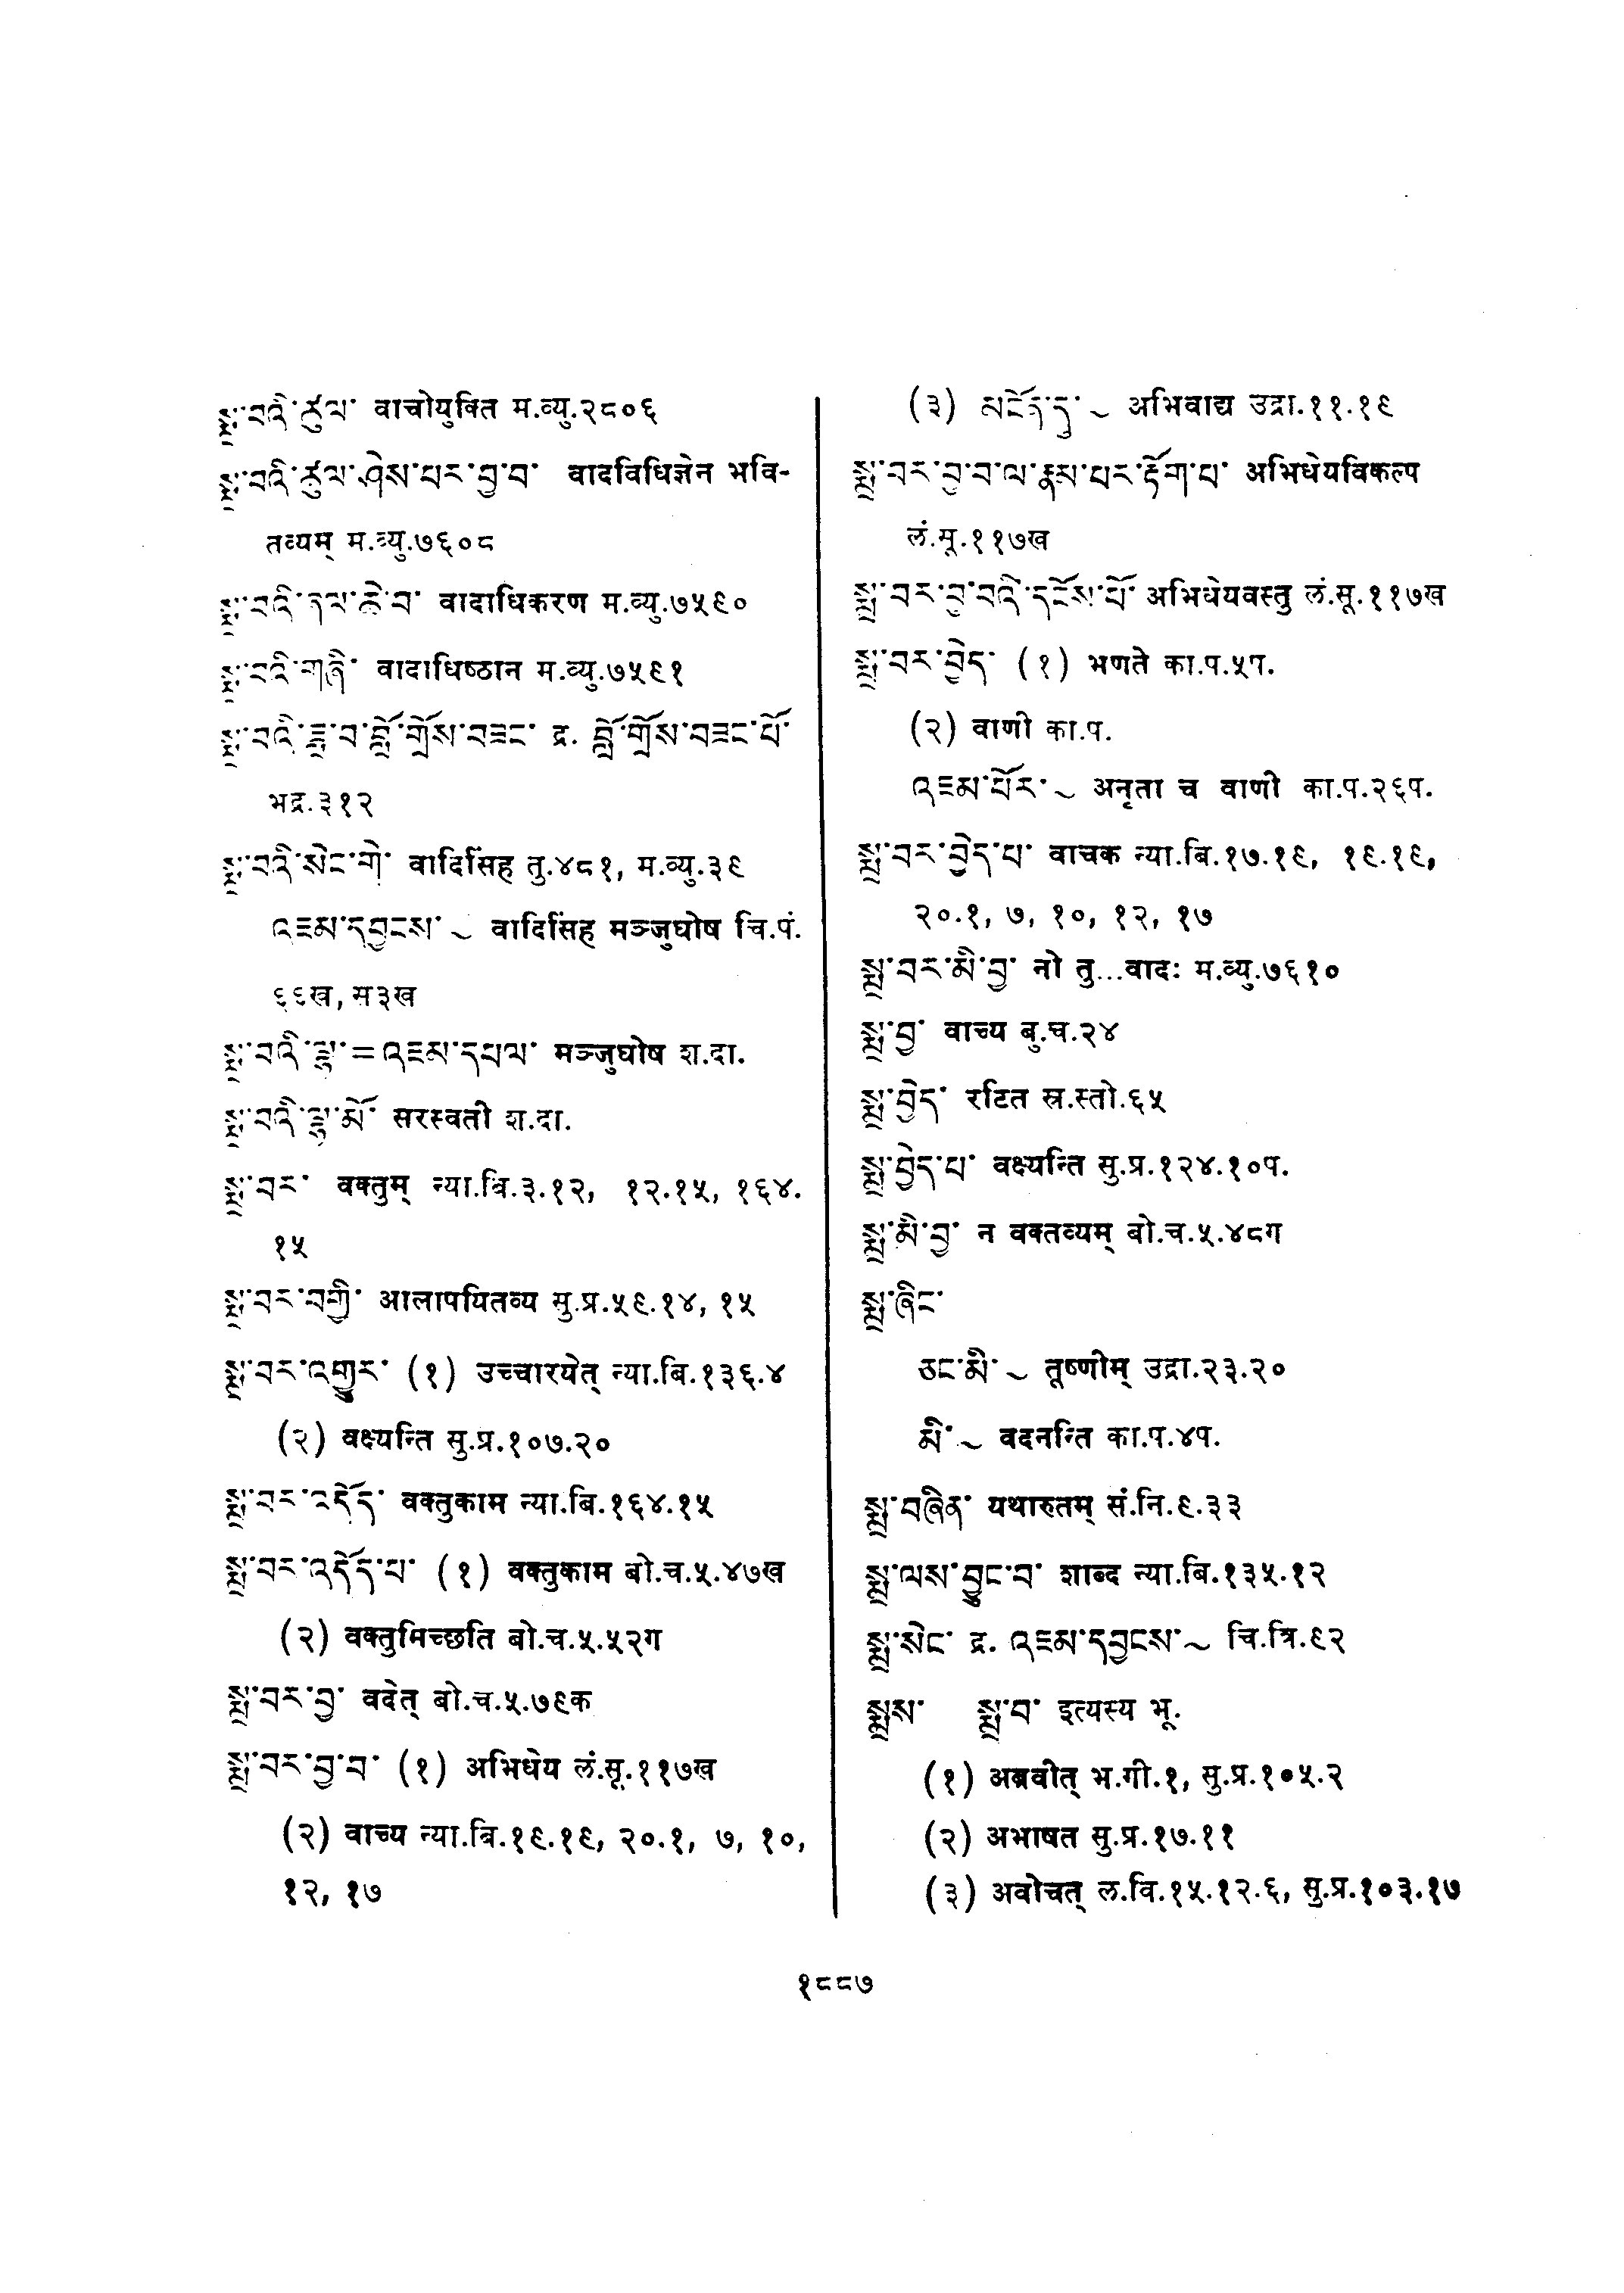 སྨྲ་བའི་ཚུལ་ वाचोयुक्ति म.व्यु.२८०६
སྨྲ་བའི་ཚུལ་ཤེས་པར་བྱ་བ་ वादविधिज्ञेन भवि-
तव्यम् म.व्यु.७६०८
སྨྲ་བའི་ཉལ་ཊེ་བ་ वादाधिकरण म.व्यु.७५९०
སྨྲ་བའི་གཞི་ वादाधिष्ठान म.व्यु.७५९१
སྨྲ་བའི་ཟླ་བ་བློ་གྲོས་བཟང་ द्र. བློ་གྲོས་བཟང་པོ་
भद्र.३१२
སྨྲ་བའི་སེང་གེ་ वादिसिंह तु.४८१, म.व्यु.३९
འཇམ་དབྱངས་ ~ वादिसिंह मञ्जुघोष चि.पं.
६६ख, स३ख
སྨྲ་བའི་ལྷ་ = འཇམ་དཔལ་ मञ्जुघोष श.दा.
སྨྲ་བའི་ལྷ་མོ་ सरस्वती श.दा.
སྨྲ་བར་ वक्तुम् न्या.बि.३.१२, १२.१५, १६४.
१५
སྨྲ་བར་བགྱི་ आलापयितव्य सु.प्र.५९.१४, १५
སྨྲ་བར་འགྱུར་ (१) उच्चारयेत् न्या.बि.१३६.४
(२) वक्ष्यन्ति सु.प्र.१०७.२०
སྨྲ་བར་འདོད་ वक्तुकाम न्या.बि.१६४.१५
སྨྲ་བར་འདོད་པ་ (१) वक्तुकाम बो.च.५.४७ख
(२) वक्तुमिच्छति बो.च.५.५२ग
སྨྲ་བར་བྱ་ वदेत् बो.च.५.७९क
སྨྲ་བར་བྱ་བ་ (१) अभिधेय लं.सू.११७ख
(२) वाच्य न्या.बि.१९.१९, २०.१, ७, १०,
१२, १७
(३) མངོན་དུ་ ~ अभिवाद्य उद्रा.११.१९
སྨྲ་བར་བྱ་བ་ལ་རྣམ་པར་རྟོག་པ་ अभिधेयविकल्प
लं.सू.११७ख
སྨྲ་བར་བྱ་བའི་དངོས་པོ་ अभिधेयवस्तु लं.सू.११७ख
སྨྲ་བར་བྱེད་ (१) भणते का.प.५प.
(२) वाणी का.प.
འཇམ་པོར་ ~ अनृता च वाणी का.प.२६प.
སྨྲ་བར་བྱེད་པ་ वाचक न्या.बि.१७.१९, १९.१९,
२०.१, ७, १०, १२, १७
སྨྲ་བར་མི་བྱ་ नो तु...वादः म.व्यु.७६१०
སྨྲ་བྱ་ वाच्य बु.च.२४
སྨྲ་བྱེད་ रटित स्र.स्तो.६५
སྨྲ་བྱེད་པ་ वक्ष्यन्ति सु.प्र.१२४.१०प.
སྨྲ་མི་བྱ་ न वक्तव्यम् बो.च.५.४८ग
སྨྲ་ཞིང་
ཅང་མི་ ~ तूष्णीम् उद्रा.२३.२०
མི་ ~ वदनन्ति का.प.४प.
སྨྲ་བཞིན་ यथारुतम् सं.नि.९.३३
སྨྲ་ལས་བྱུང་བ་ शाब्द न्या.बि.१३५.१२
སྨྲ་སེང་ द्र. འཇམ་དབྱངས་ ~ चि.त्रि.९२
སྨྲས་ སྨྲ་བ་ इत्यस्य भू.
(१) अब्रवीत् भ.गी.१, सु.प्र.१०५.२
(२) अभाषत सु.प्र.१७.११
(३) अवोचत् ल.वि.१५.१२.६, सु.प्र.१०३.१७
१८८७